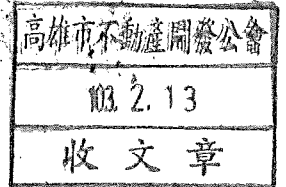 高雄市不動產開發公會
103.2.13
收文章